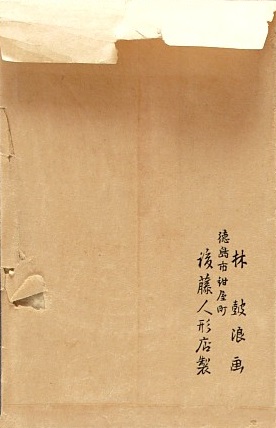 林鼓浪画
徳島市紺屋町
後藤人形店製